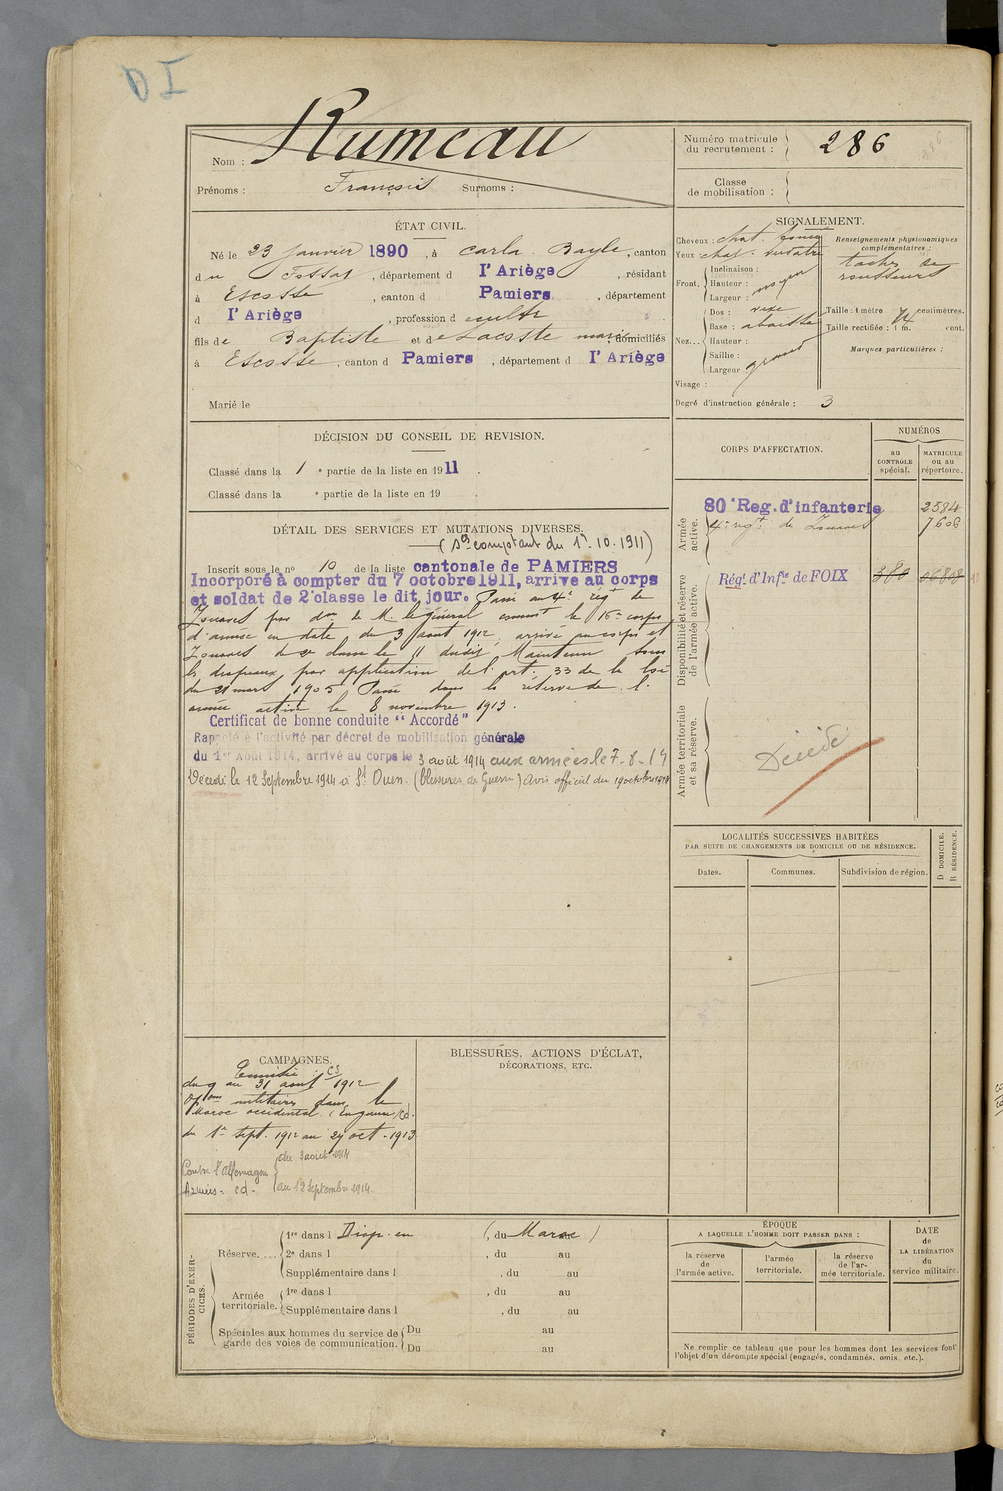 D I
Nom : Rumeau
Prénoms : François Surnoms :
Numéro matricule du recrutement : 286
Classe de mobilisation :
ÉTAT CIVIL.
Né le 23 janvier 1890, à Carla Bayle, canton
du Fossat, département d l'Ariège, résidant
à Escosse, canton d Pamiers, département
d l'Ariège, profession d cultr
fils de Baptiste et de Lacoste marie domiciliés
à Escosse, canton d Pamiers, département d l'Ariège
Marié le
SIGNALEMENT.
Cheveux : chat. foncé
Yeux chat. verdâtre
Front. Inclinaison :
Hauteur : moyen
Largeur :
Nez... Dos : vexe
Base : abaissée
Hauteur :
Saillie :
Largeur grand
Visage :
Renseignements physionomiques complémentaires :
taches de
rousseurs
Taille : 1 mètre 74 centimètres.
Taille rectifiée : 1 m. cent.
Marques particulières :
Degré d'instruction générale : 3
DÉCISION DU CONSEIL DE REVISION.
Classé dans la 1 e partie de la liste en 1911.
Classé dans la e partie de la liste en 19 .
DÉTAIL DES SERVICES ET MUTATIONS DIVERSES.
(Ses comptant du 1r.10.1911)
Inscrit sous le no 10 de la liste cantonale de PAMIERS
Incorporé à compter du 7 octobre 1911, arrive au corps
et soldat de 2e classe le dit jour. Passé au 4e régt de
Zouaves par don de M. le Général commt le 16e corps
d'armée en date du 3 août 1912, arrivé au corps et
Zouaves de 2e classe le 11 dudit. Maintenu sous
les drapeaux par application de l'art. 33 de la loi
du 21 mars 1905 Passé dans la réserve de l'
armée active le 8 novembre 1913.
Certificat de bonne conduite "Accordé"
Rappelé à l'activité par décret de mobilisation générale
du 1er Août 1914, arrivé au corps le 3 août 1914 aux armées le 7-8-14
Décédé le 12 Septembre 1914 à St Ouen. (Blessures de Guerre) Avis officiel du 19 octobre 1914
CORPS D'AFFECTATION.
NUMÉROS
au CONTRÔLE spécial.
MATRICULE ou au répertoire.
Armée active.
80e Reg. d'infanterie 2584
4e régt de Zouaves 7606
Disponibilité et réserve de l'armée active.
Régt d'Infie de FOIX 380
Armée territoriale et sa réserve.
Décédé
LOCALITÉS SUCCESSIVES HABITÉES
PAR SUITE DE CHANGEMENTS DE DOMICILE OU DE RÉSIDENCE.
Dates.
Communes.
Subdivision de région.
D DOMICILE.
R RÉSIDENCE.
CAMPAGNES.
Tunisie : CS
du 9 au 31 août 1912
Opons militaires dans le
Maroc occidental. (En guerre) Cd.
du 1er sept. 1912 au 29 oct. 1913
Contre l'Allemagne du 3 août 1914
Armées - cd - au 12 Septembre 1914
BLESSURES, ACTIONS D'ÉCLAT,
DÉCORATIONS, ETC.
PÉRIODES D'EXERCICES.
Réserve.... 1re dans l Disp. en (, du Maroc )
2e dans l , du au
Supplémentaire dans l , du au
Armée territoriale. 1re dans l , du au
Supplémentaire dans l , du au
Spéciales aux hommes du service de garde des voies de communication. Du au
Du au
ÉPOQUE
A LAQUELLE L'HOMME DOIT PASSER DANS :
la réserve de l'armée active.
l'armée territoriale.
la réserve de l'armée territoriale.
DATE
de
LA LIBÉRATION
du
service militaire.
Ne remplir ce tableau que pour les hommes dont les services font
l'objet d'un décompte spécial (engagés, condamnés, omis, etc.).